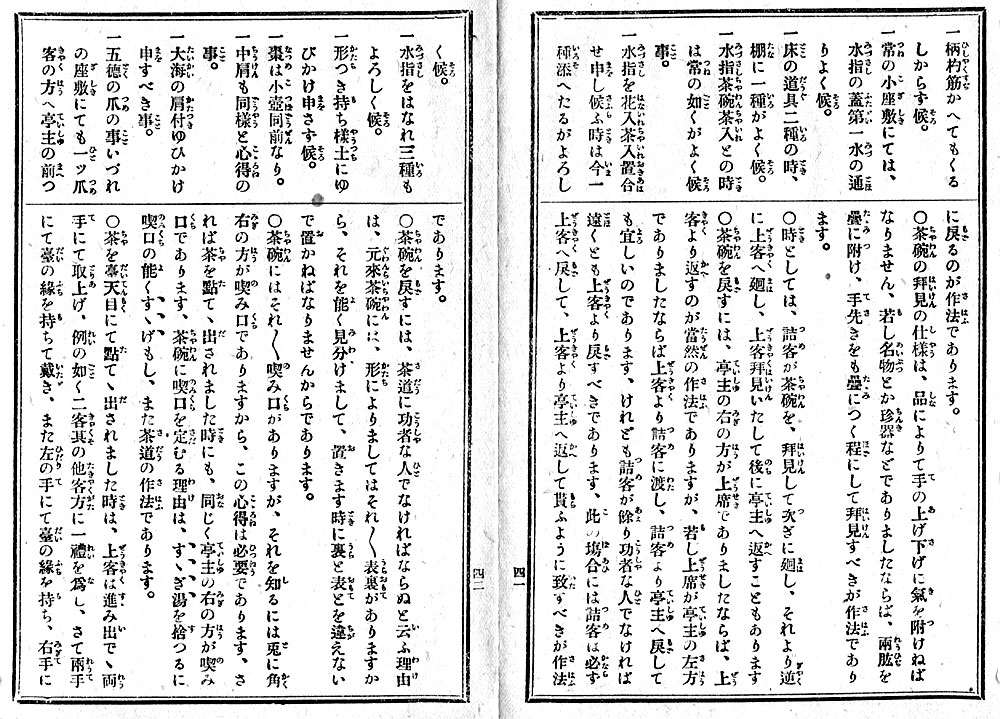 一柄杓筋かへてもくる
しからす候。
一常の小座敷にては、
水指の蓋第一水の通
りよく候。
一床の道具二種の時、
棚に一種がよく候。
一水指茶碗茶入との時
は常の如くがよく候
事。
一水指を花入茶入置合
せ申し候ふ時は今一
種添へたるがよろし
に戻るのが作法であります。
〇茶碗の拜見の仕樣は、品によりて手の上げ下げに氣を附けねば
なりません、若し名物とか珍器などでありましたならば、兩肱を
疊に附け、手先きをも疊につく程にして拜見すべきが作法であり
ます。
〇時としては、詰客が茶碗を、拜見して次ぎに廻し、それより逆
に上客へ廻し、上客拜見いたして後に亭主へ返すこともあります
〇茶碗を戻すには、亭主の右の方が上席でありましたならば、上
客より返すのが當然の作法でありますが、若し上席が亭主の左方
でありましたならば上客より詰客に渡し、詰客より亭主へ戻して
も宜しいのであります、けれども詰客が餘り功者な人でなければ
遠くとも上客より戻すべきであります、此の塲合には詰客は必ず
上客へ戻して、上客より亭主へ返して貰ふように致すべきが作法
四二
く候。
一水指をはなれ三種も
よろしく候。
一形つき持ち樣土にゆ
びかけ申さす候。
一棗は小壺同前なり。
一中肩も同樣と心得の
事。
一大海の肩付ゆひかけ
申すべき事。
一五德の爪の事いづれ
の座敷にても一ッ爪
客の方へ亭主の前つ
であります。
〇茶碗を戻すには、茶道に功者な人でなければならぬと云ふ理由
は、元來茶碗には、形によりましてはそれ〱表裏がありますか
ら、それを能く見分けまして、置きます時に裏と表とを違えない
で置かねばなりませんからであります。
〇茶碗にはそれ〱喫み口がありますが、それを知るには兎に角
右の方が喫み口でありますから、この心得は必要であります、さ
れば茶を點てゝ出されました時にも、同じく亭主の右の方が喫み
口であります、茶碗に喫口を定むる理由は、すゝぎ湯を捨つるに
喫口の能くすゝげもし、また茶道の作法であります。
〇茶を臺天目にて點てゝ出されました時は、上客は進み出でゝ兩
手にて取上げ、例の如く二客其の他客方に一禮を爲し、さて兩手
にて臺の緣を持ちて戴き、また左の手にて臺の緣を持ち、右手に
四三